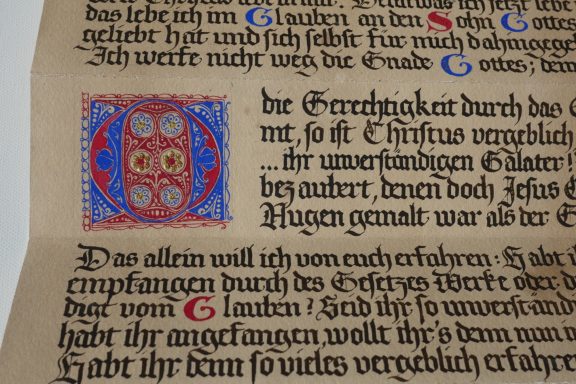 das lebe ich im Glauben an den Sohn Gottes
geliebt hat und sich selbst für mich dahingegeb
Ich werfe nicht weg die Gnade Gottes; denn
die Gerechtigkeit durch das G
mt, so ist Christus vergeblich
O
...ihr unverständigen Galater!
bezaubert, denen doch Jesus C
Augen gemalt war als der G
Das allein will ich von euch erfahren: Habt i
empfangen durch des Gesetzes Werke oder d
digt vom Glauben? Seid ihr so unverständ
habt ihr angefangen, wollt ihr's denn nun
Habt ihr denn so vieles vergeblich erfahre